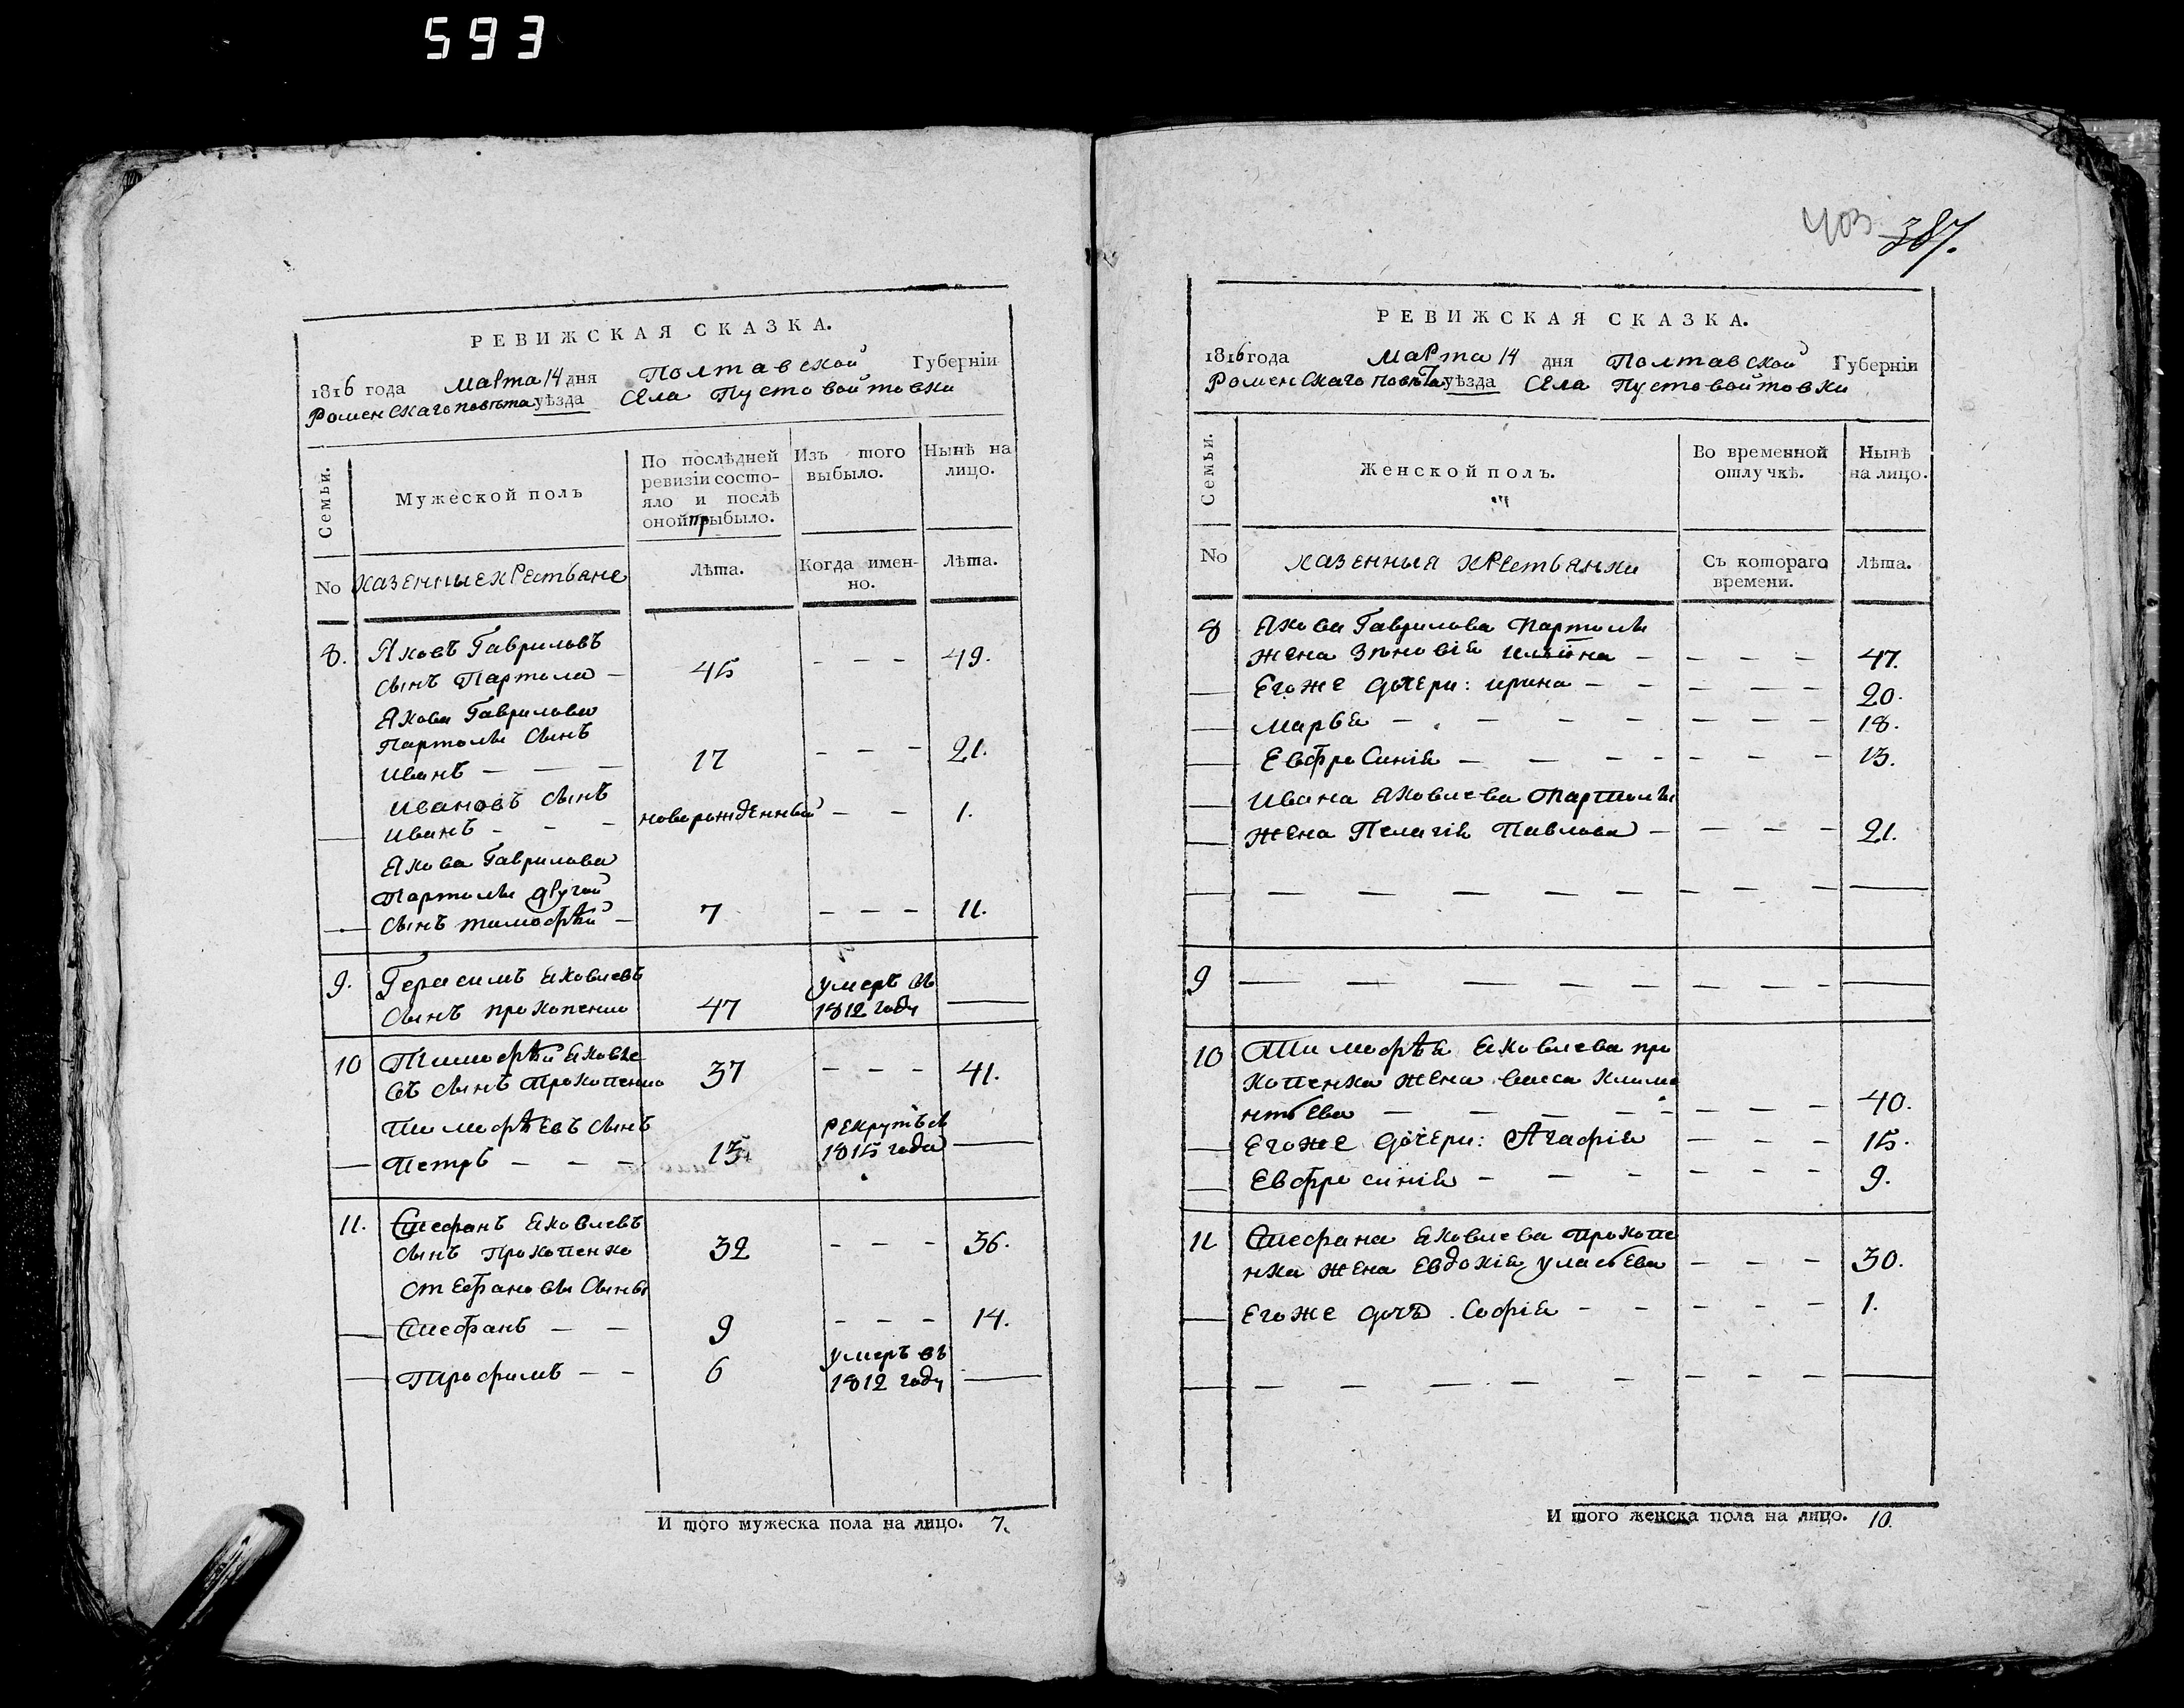 593
РЕВИЖСКАЯ СКАЗКА.
1816 года марта 14 дня Полтавской Губерніи
Роменскаго повѣта уѣзда села Пустовойтовки
Семьи.
Мужеской полъ
По послѣдней
ревизіи состо-
яло и послѣ
оной прибыло.
Изъ того
выбыло.
Нынѣ на
лицо.
No
казенные крестьяне
Лѣта.
Когда имен-
но.
Лѣта.
8. Яковъ Гавриловъ
сынъ Партола – 45 – – – 49.
Якова Гаврилова
Партолы сынъ
Иванъ – – – 17 – – – 21.
Ивановъ сынъ
Иванъ – – – новорожденный – – 1.
Якова Гаврилова
Партолы другой
сынъ тимофѣй – 7 – – – 11.
9. Герасимъ яковлевъ умеръ въ
сынъ прокопенко 47 1812 году
10 Тимофѣй яковле
въ сынъ Прокопенко 37 – – – 41.
Тимофѣевъ сынъ рекрутъ съ
Петръ – – – 13 1815 года
11. Стефанъ яковлевъ
сынъ Прокопенко 32 – – – 36.
стефановы сыны
Стефанъ – – 9 – – – 14.
умеръ въ
Трофимъ – – 6 1812 году
И того мужеска пола на лицо. 7.
403 387.
РЕВИЖСКАЯ СКАЗКА.
1816 года марта 14 дня Полтавской Губерніи
Роменскаго повѣта уѣзда села Пустовойтовки
Семьи.
Женской полъ.
Во временной
отлучкѣ.
Нынѣ
на лицо.
No
казенныя крестьянки
Съ котораго
времени.
Лѣта.
8 Якова Гаврилова Партолы
жена Зѣновія ильина – – – – 47.
Егоже дочери: ирина – – – – – 20.
марья – – – – – – – 18.
Евфросинія – – – – – – – 13.
Ивана Яковлева Партолы
жена Пелагія Павлова – – – – 21.
9 – – – – – – – –
10 Тимофѣя яковлева про
копенка жена васса климе
нтьева – – – – – – – 40.
Егоже дочери: Агафія – – – 15.
Евфросинія – – – – – – 9.
11 Стефана яковлева Прокопе
нка жена Евдокія уласьева – – – 30.
Егоже дочь Софія – – – – – 1.
И того женска пола на лицо. 10.